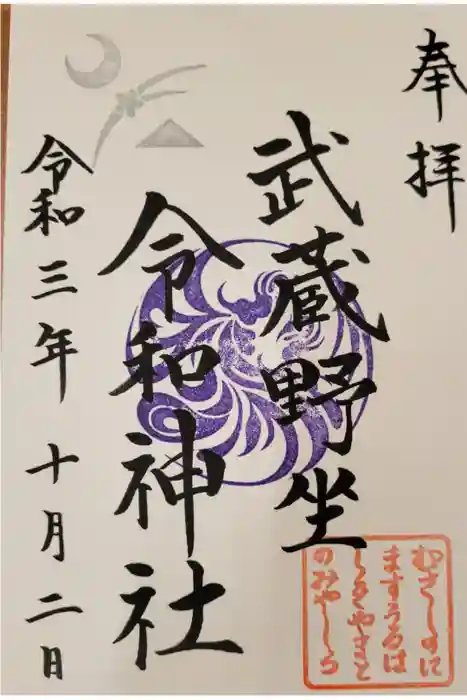 奉拝
武蔵野坐
令和神社
令和三年十月二日
むさしのに
ますうるは
しきやまと
のみやしろ